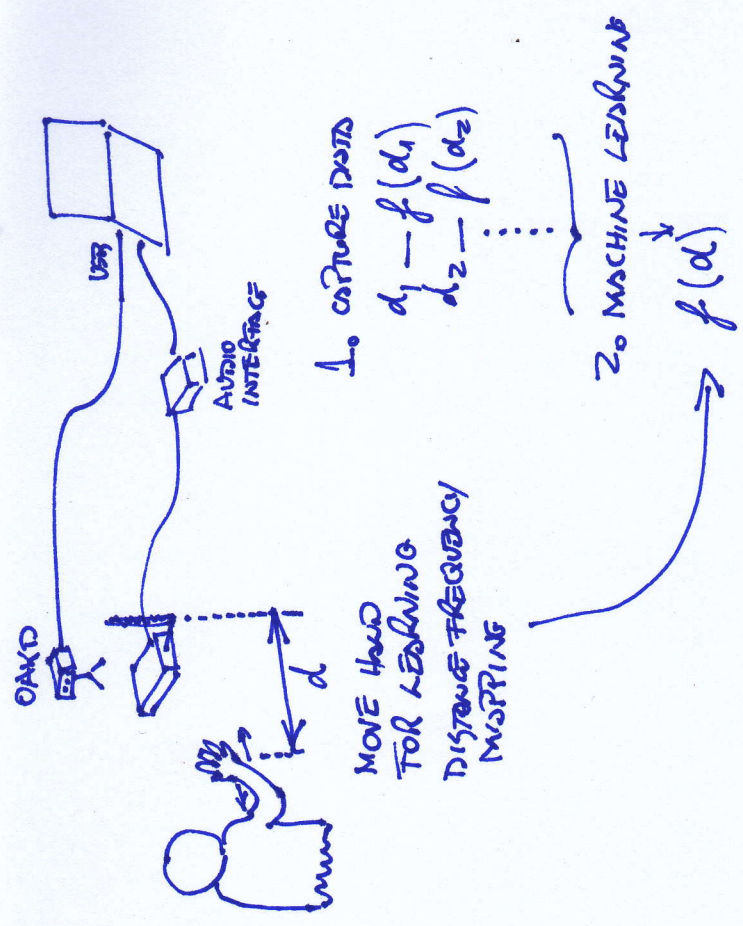 OAKD
USB
AUDIO
INTERFACE
d
MOVE HAND
FOR LEARNING
DISTANCE FREQUENCY
MAPPING
1. CAPTURE DATA
d1 — f(d1)
d2 — f(d2)
......
2. MACHINE LEARNING
f(d)